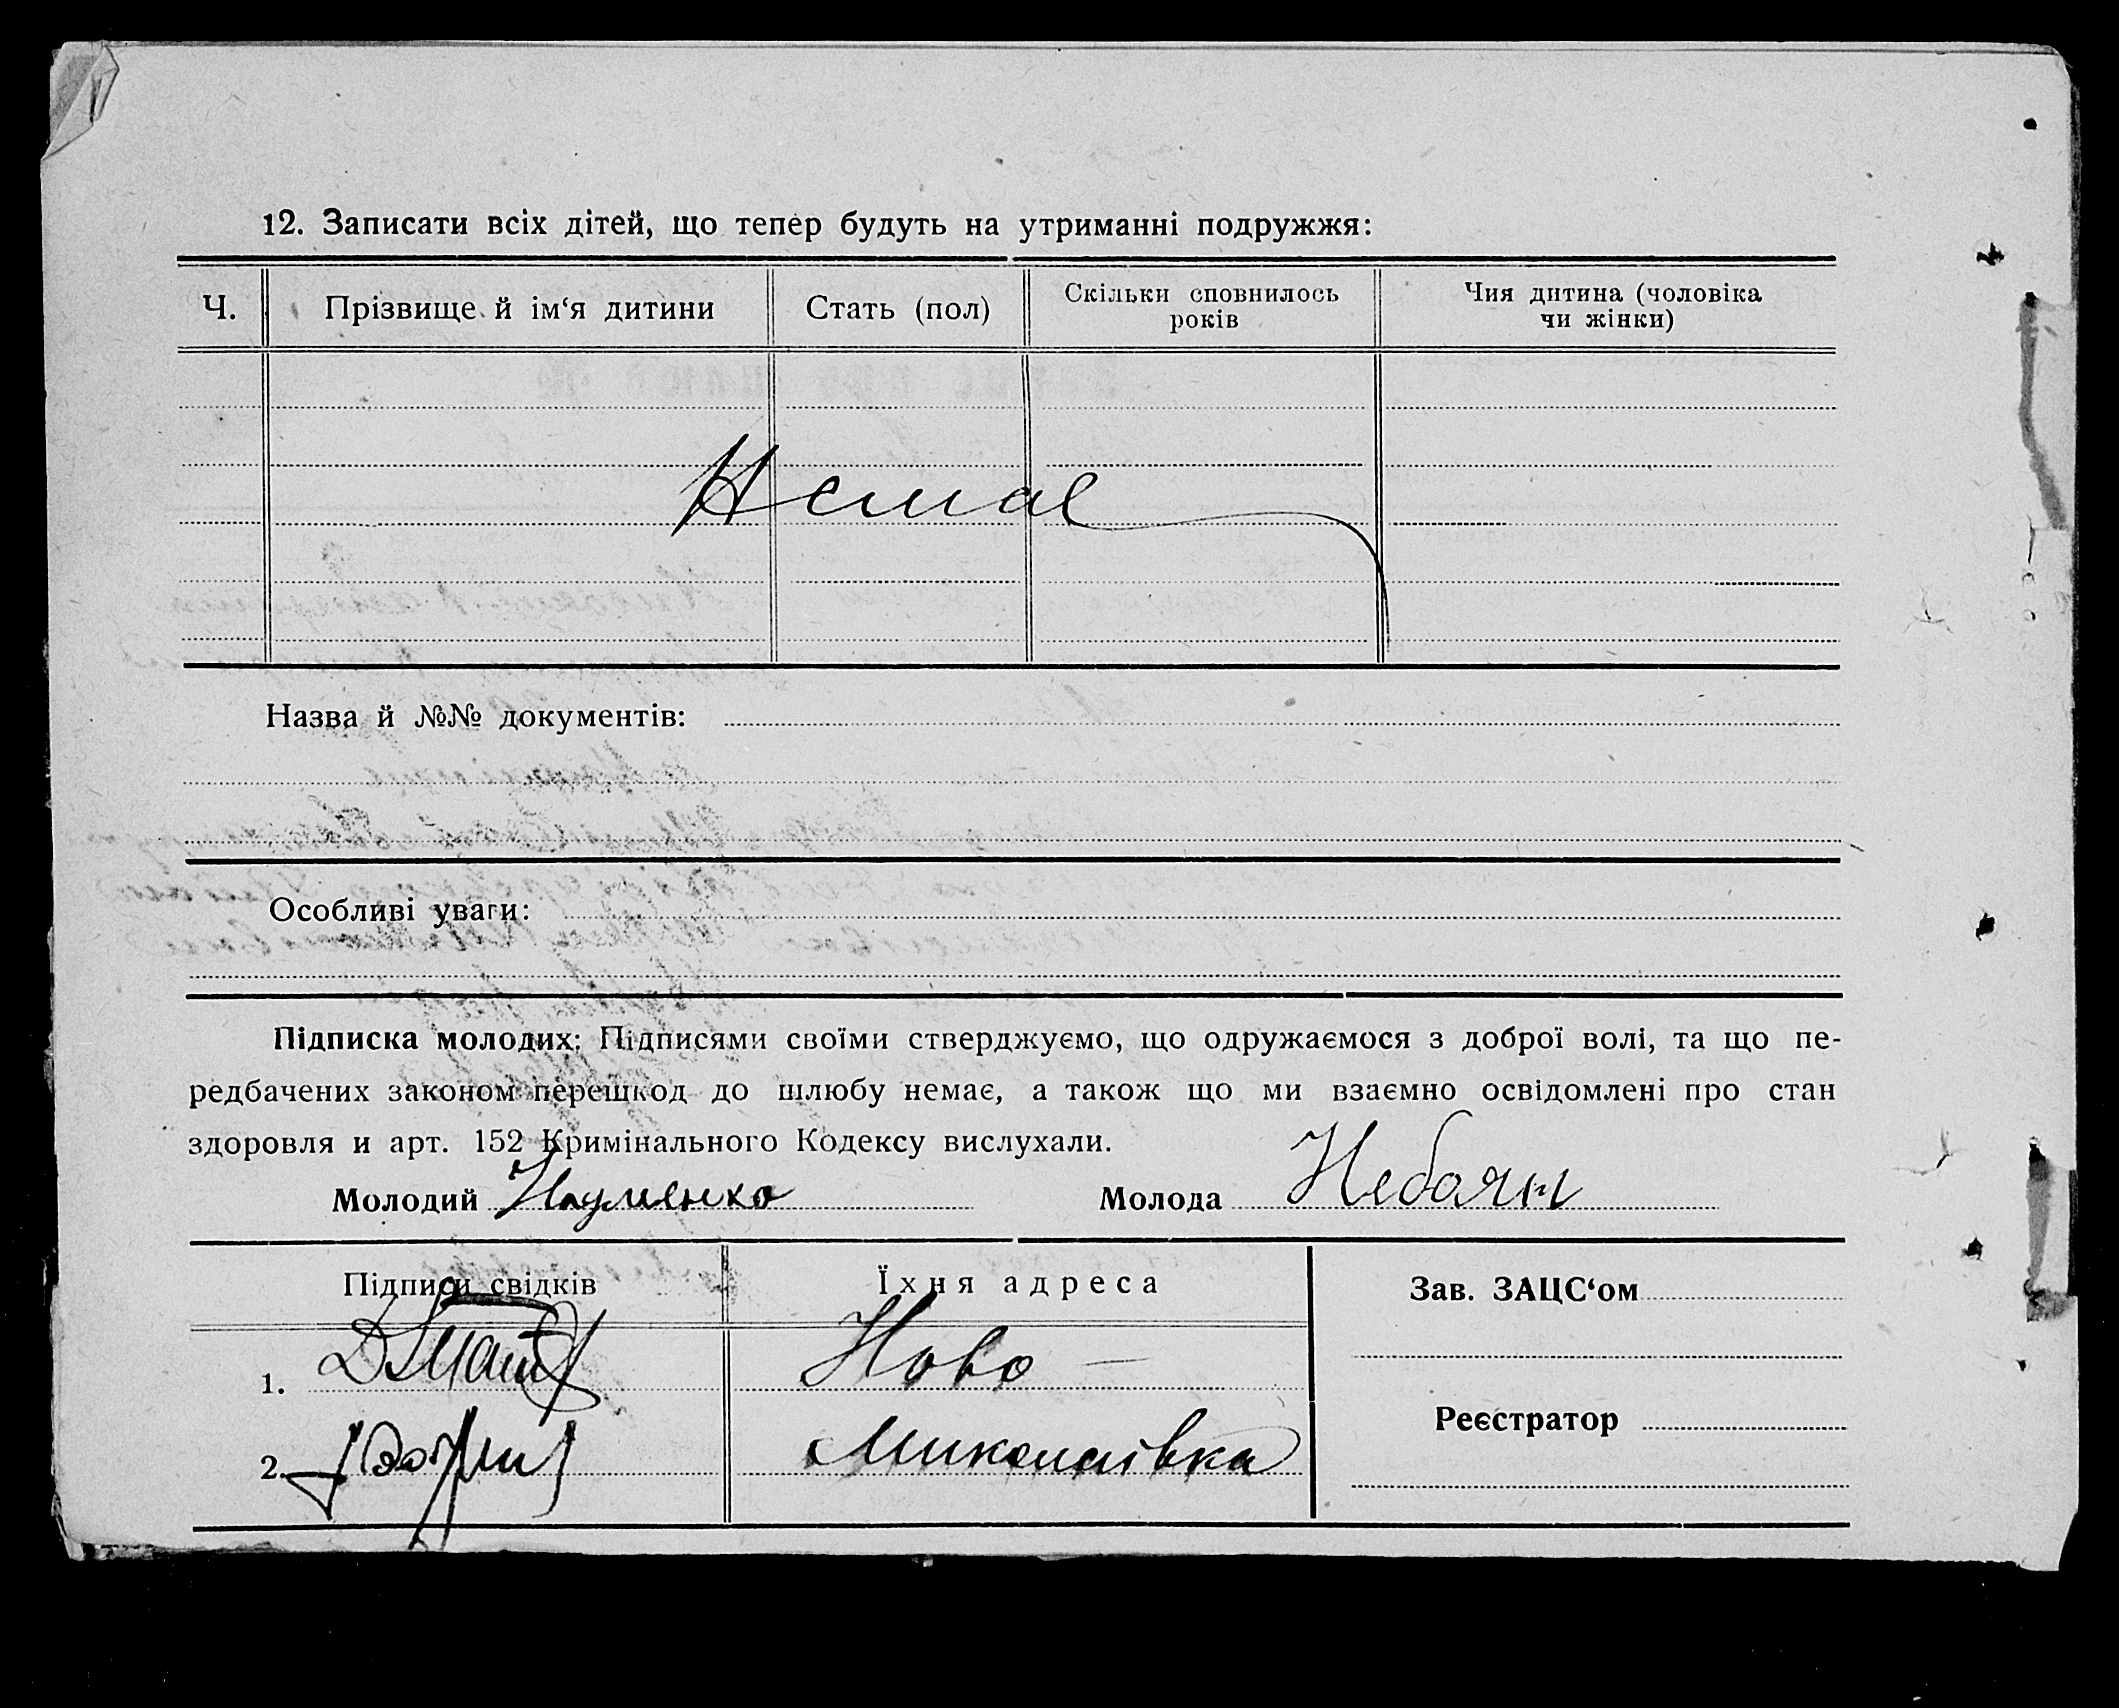 12. Записати всіх дітей, що тепер будуть на утриманні подружжя:
Ч. Прізвище й ім‘я дитини Стать (пол) Скільки сповнилось років Чия дитина (чоловіка чи жінки)
Немае
Назва й №№ документів:
Особливі уваги:
Підписка молодих: Підписями своїми стверджуємо, що одружаємося з доброї волі, та що пе-
редбачених законом перешкод до шлюбу немає, а також що ми взаємно освідомлені про стан
здоровля и арт. 152 Кримінального Кодексу вислухали.
Молодий Науменко Молода
Підписи свідків Їхня адреса Зав. ЗАЦС‘ом
1. Ново —
Реєстратор
2. Миколаівка